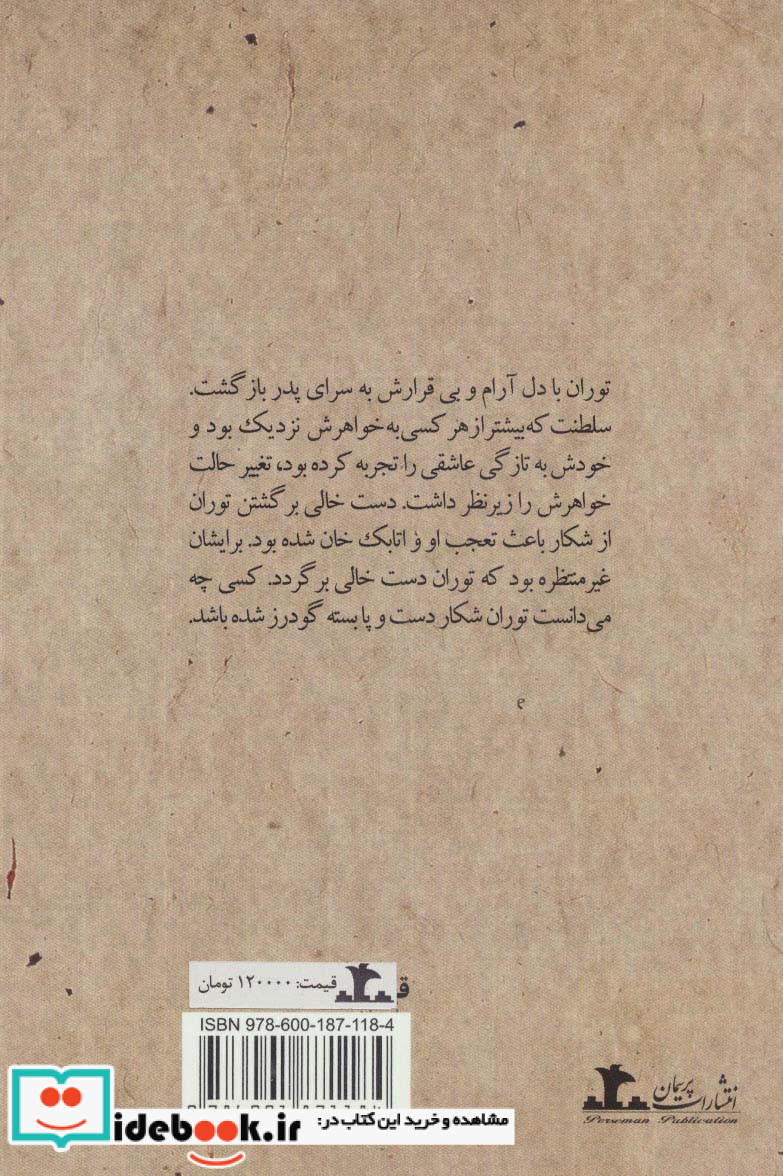 توران با دل آرام و بی قرارش به سرای پدر بازگشت.
سلطنت که بیشتر از هر کسی به خواهرش نزدیک بود و
خودش به تازگی عاشقی را تجربه کرده بود، تغییر حالت
خواهرش را زیر نظر داشت. دست خالی برگشتن توران
از شکار باعث تعجب او و اتابک خان شده بود. برایشان
غیرمنتظره بود که توران دست خالی برگردد. کسی چه
می‌دانست توران شکار دست و پا بسته گودرز شده باشد.
قیمت: ۱۲۰۰۰۰ تومان
ISBN 978-600-187-118-4
انتشارات پرسمان
Porseman Publication
مشاهده و خرید این کتاب در:
idebook.ir